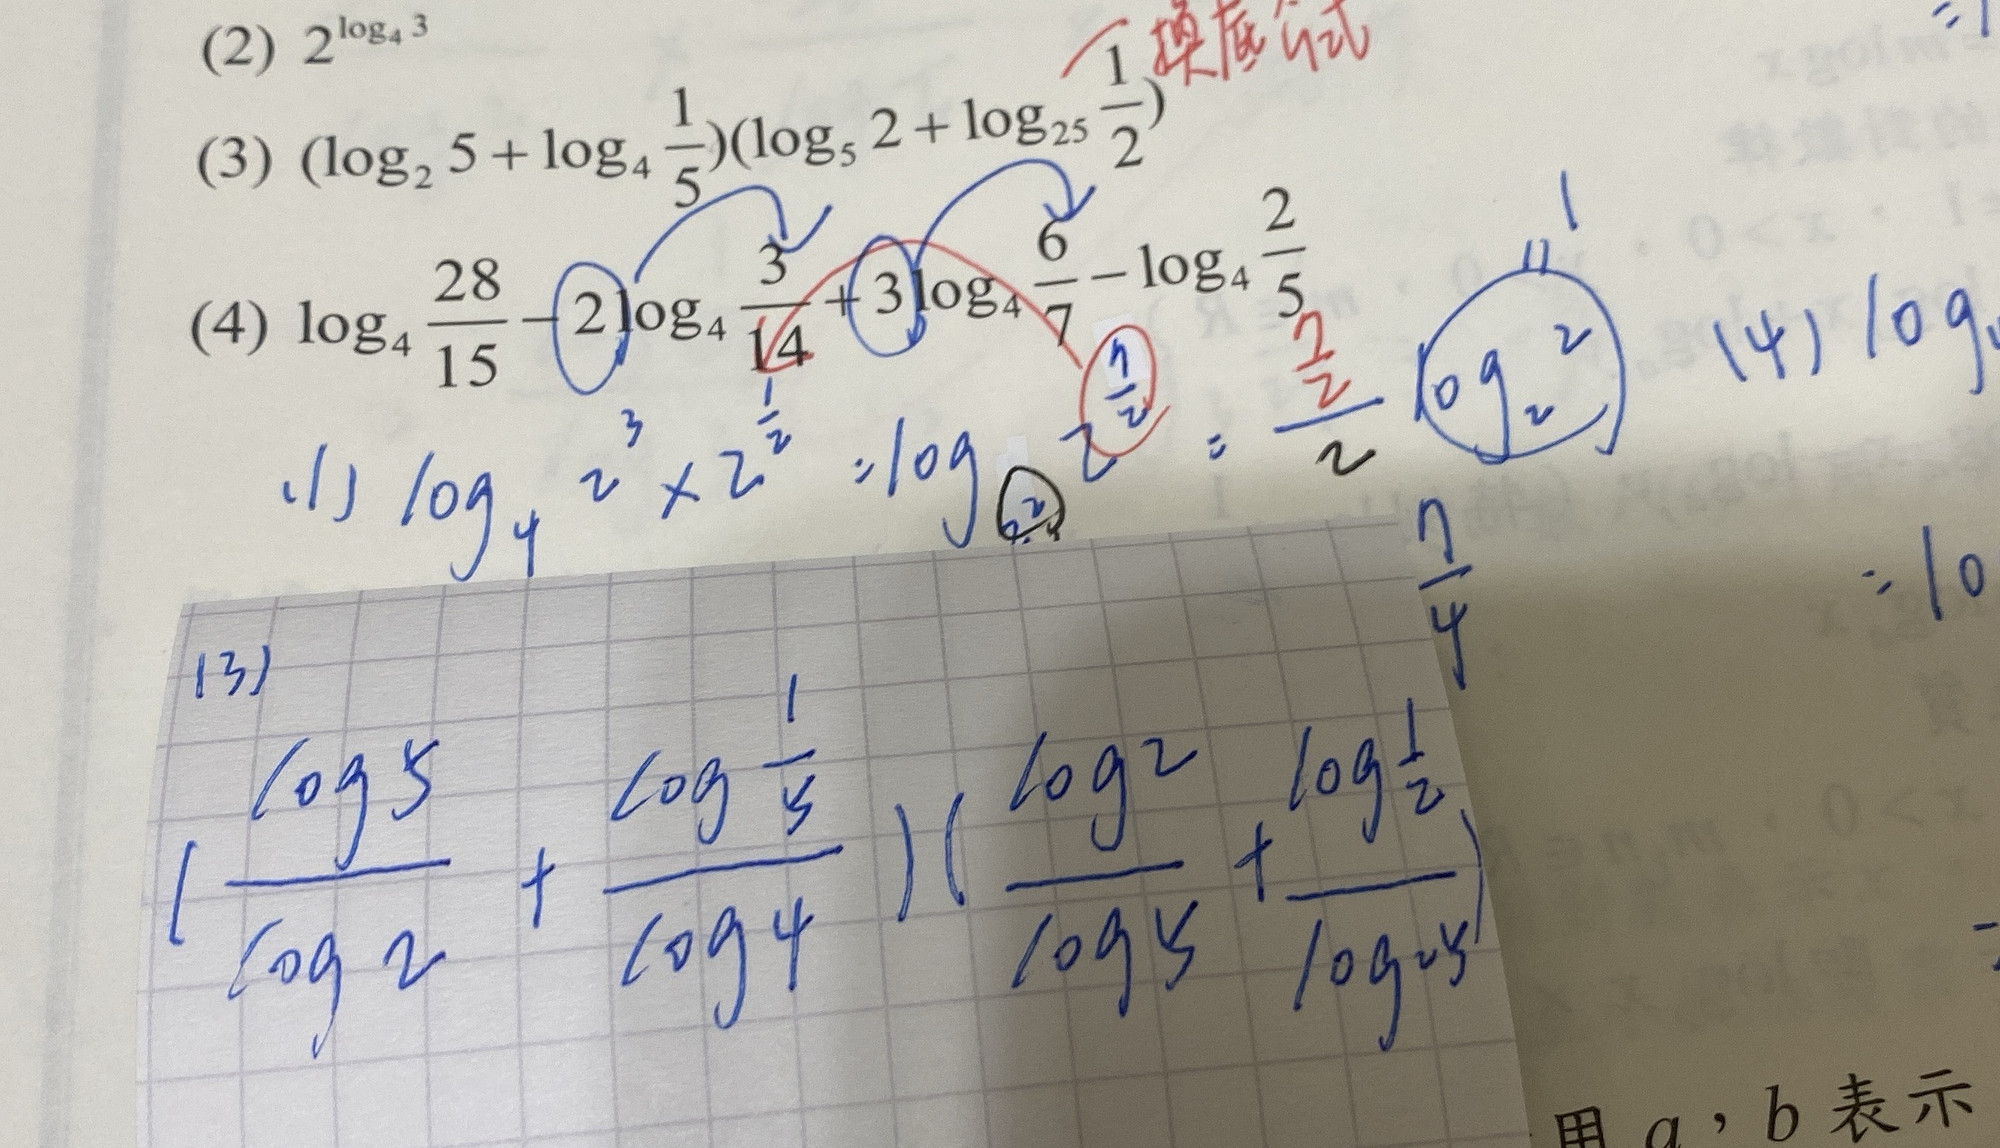 (2) 2^{log₄ 3}
換底公式
(3) (log₂ 5 + log₄ 1/5)(log₅ 2 + log₂₅ 1/2)
(4) log₄ 28/15 − 2log₄ 3/14 + 3log₄ 6/7 − log₄ 2/5
(1) log₄ 2³ × 2^{1/2} = log_{2²} 2^{7/2} = (7/2)/2 log₂ 2
1
"
7/4
(4) log
= lo
(3)
(log 5 / log 2 + log 1/5 / log 4)(log 2 / log 5 + log 1/2 / log 25)
用 a，b 表示